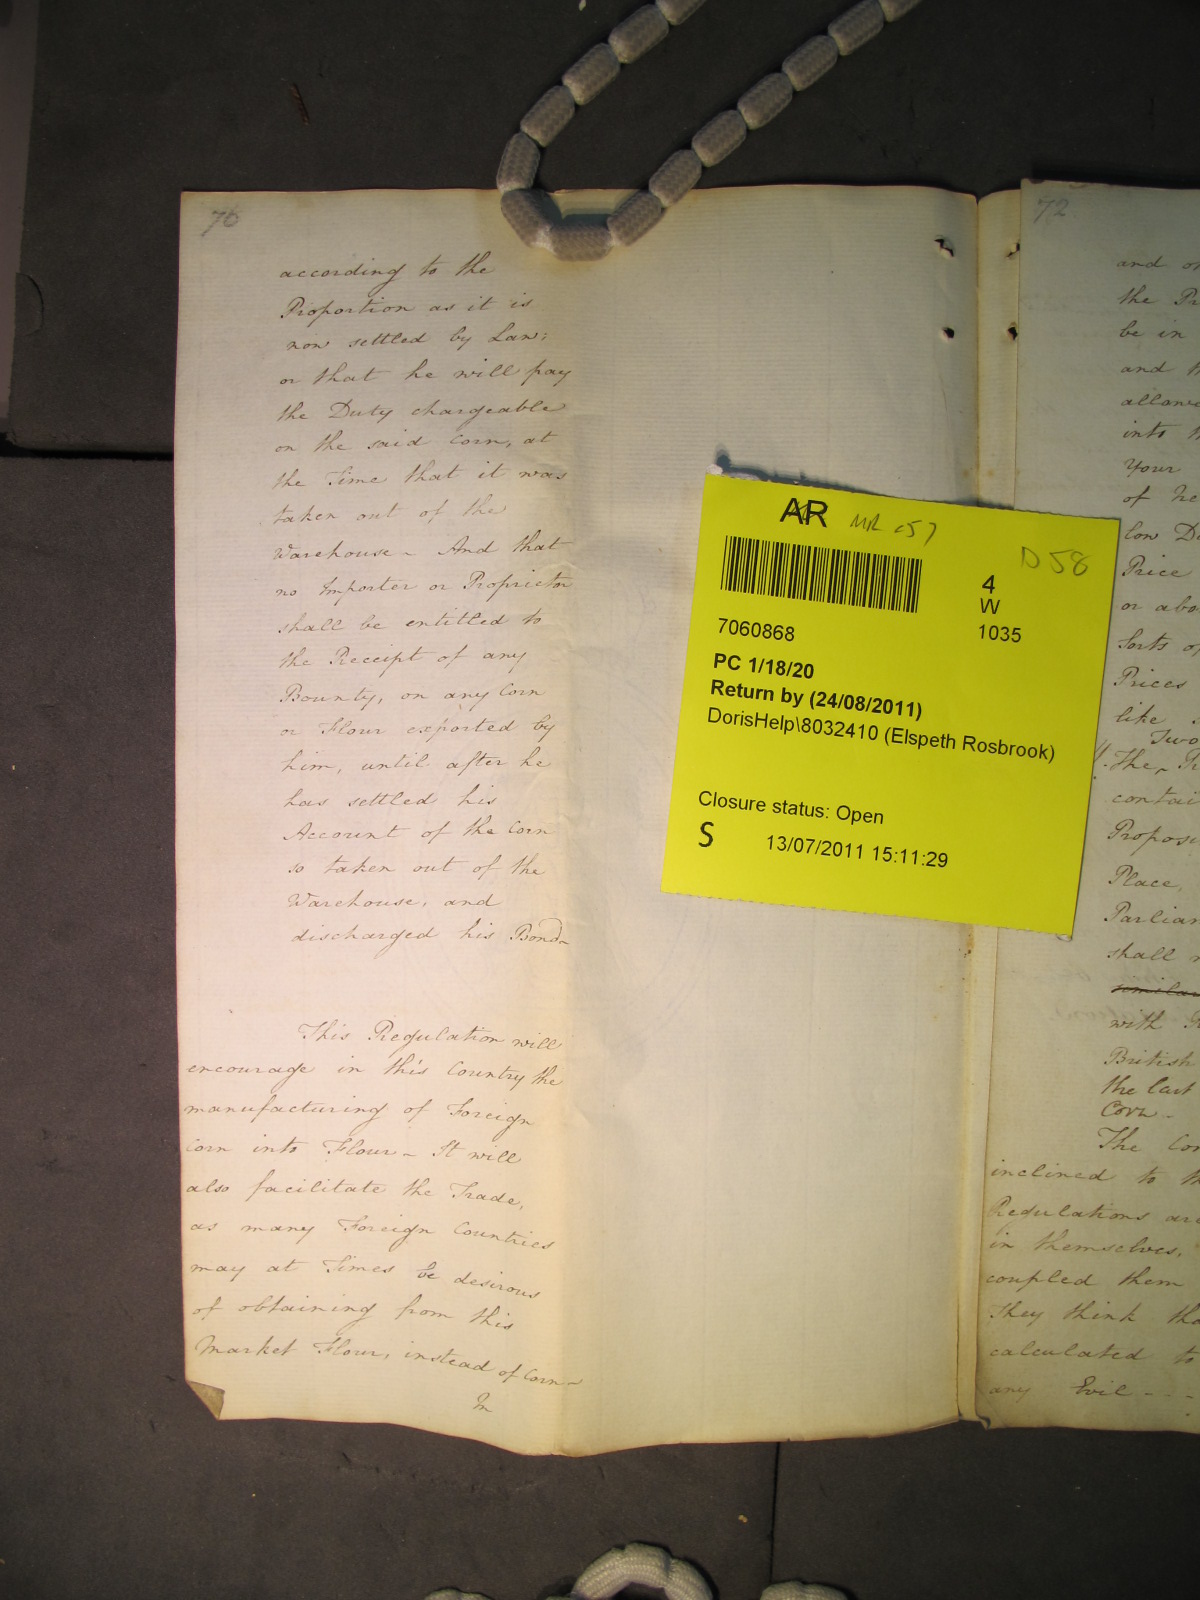 70
according to the
Proportion as it is
now settled by Law;
or that he will pay
the Duty chargeable
on the said Corn, at
the Time that it was
taken out of the
Warehouse - And that
no Importer or Proprietor
shall be entitled to
the Receipt of any
Bounty, on any Corn
or Flour exported by
him, until after he
has settled his
Account of the Corn
so taken out of the
Warehouse, and
discharged his Bond -
This Regulation will
encourage in this Country the
manufacturing of Foreign
Corn into Flour - It will
also facilitate the Trade,
as many Foreign Countries
may at Times be desirous
of obtaining from this
Market Flour, instead of Corn -
In
AR
D 58
4
W
1035
7060868
PC 1/18/20
Return by (24/08/2011)
DorisHelp\8032410 (Elspeth Rosbrook)
Closure status: Open
S 13/07/2011 15:11:29
72
and
the
be in
and
into
Your
of
Price
or
Sorts
Prices
like
Two
The
Place,
shall
with
British
the last
Corn -
The
inclined to
Regulations
in themselves,
coupled them
They think
calculated to
any Evil - -